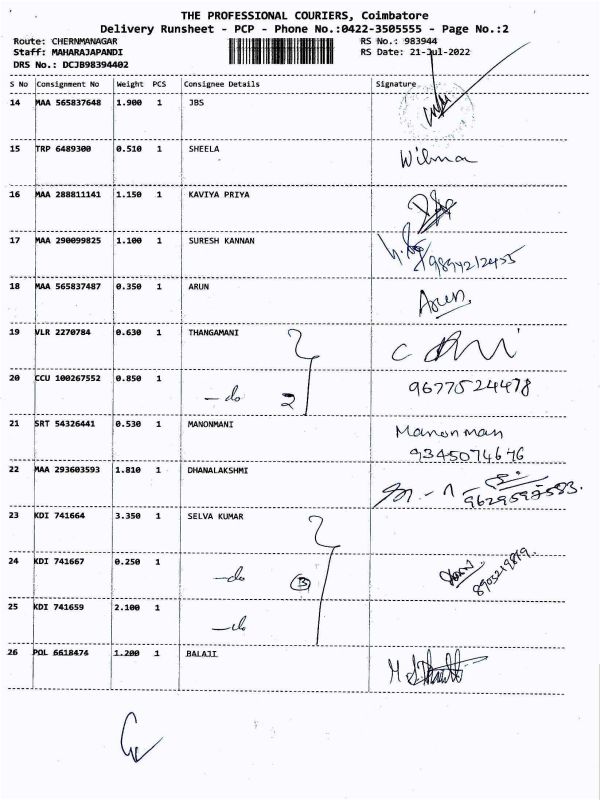 THE PROFESSIONAL COURIERS, Coimbatore
Delivery Runsheet - PCP - Phone No.:0422-3505555 - Page No.:2
Route: CHERNMANAGAR RS No.: 983944
Staff: MAHARAJAPANDI RS Date: 21-Jul-2022
DRS No.: DCJB98394402
S No Consignment No Weight PCS Consignee Details Signature
14 MAA 565837648 1.900 1 JBS
15 TRP 6489300 0.510 1 SHEELA Wilma
16 MAA 288811141 1.150 1 KAVIYA PRIYA
17 MAA 290099825 1.100 1 SURESH KANNAN
9894212455
18 MAA 565837487 0.350 1 ARUN Arun
19 VLR 2270784 0.630 1 THANGAMANI
20 CCU 100267552 0.850 1 9677524478
-do 2
21 SRT 54326441 0.530 1 MANONMANI Manonman
9345074676
22 MAA 293603593 1.810 1 DHANALAKSHMI
23 KDI 741664 3.350 1 SELVA KUMAR
24 KDI 741667 0.250 1
-do 3
25 KDI 741659 2.100 1
-do
26 POL 6618474 1.200 1 BALAJI